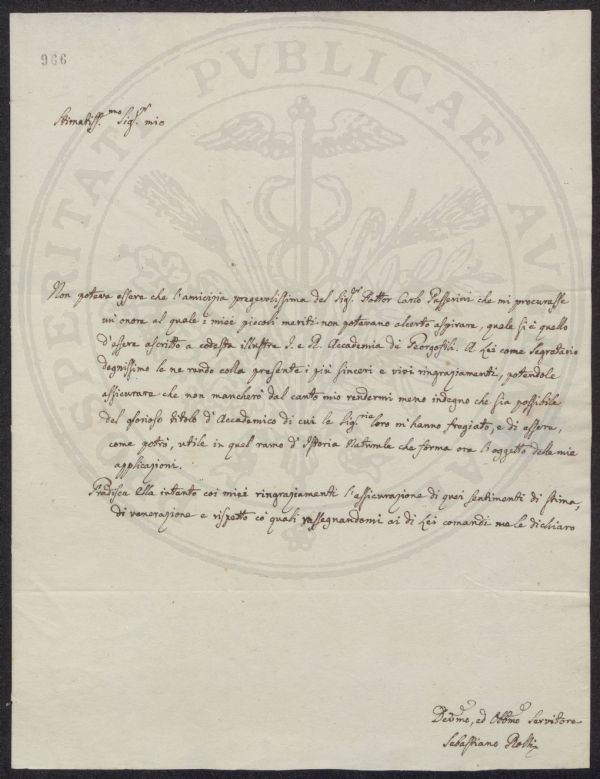 966
PROSPERITATI PVBLICAE AVGENDAE
Stimatiss.mo Sig.r mio
Non poteva essere che l'amicizia pregevolissima del Sig.r Dottor Carlo Passerini che mi procurasse
un'onore al quale i miei piccoli meriti non potevano alcerto aspirare, quale si è quello
d'essere ascritto a codesta illustre I. e R. Accademia de' Georgofili. A Lei come Segretario
degnissimo le ne rendo colla presente i più sinceri e vivi ringraziamenti, potendole
assicurare che non mancherò dal canto mio rendermi meno indegno che sia possibile
del glorioso titolo d'Accademico di cui le Sig.rie loro m'hanno fregiato, e di essere,
come potrò, utile in quel ramo d'Istoria Naturale che forma ora l'oggetto delle mie
applicazioni.
Gradisca Ella intanto coi miei ringraziamenti l'assicurazione di quei sentimenti di stima,
di venerazione e rispetto co' quali rassegnandomi ai di Lei comandi me le dichiaro
Devmo, ed Obbmo Servitore
Sebastiano Rolli